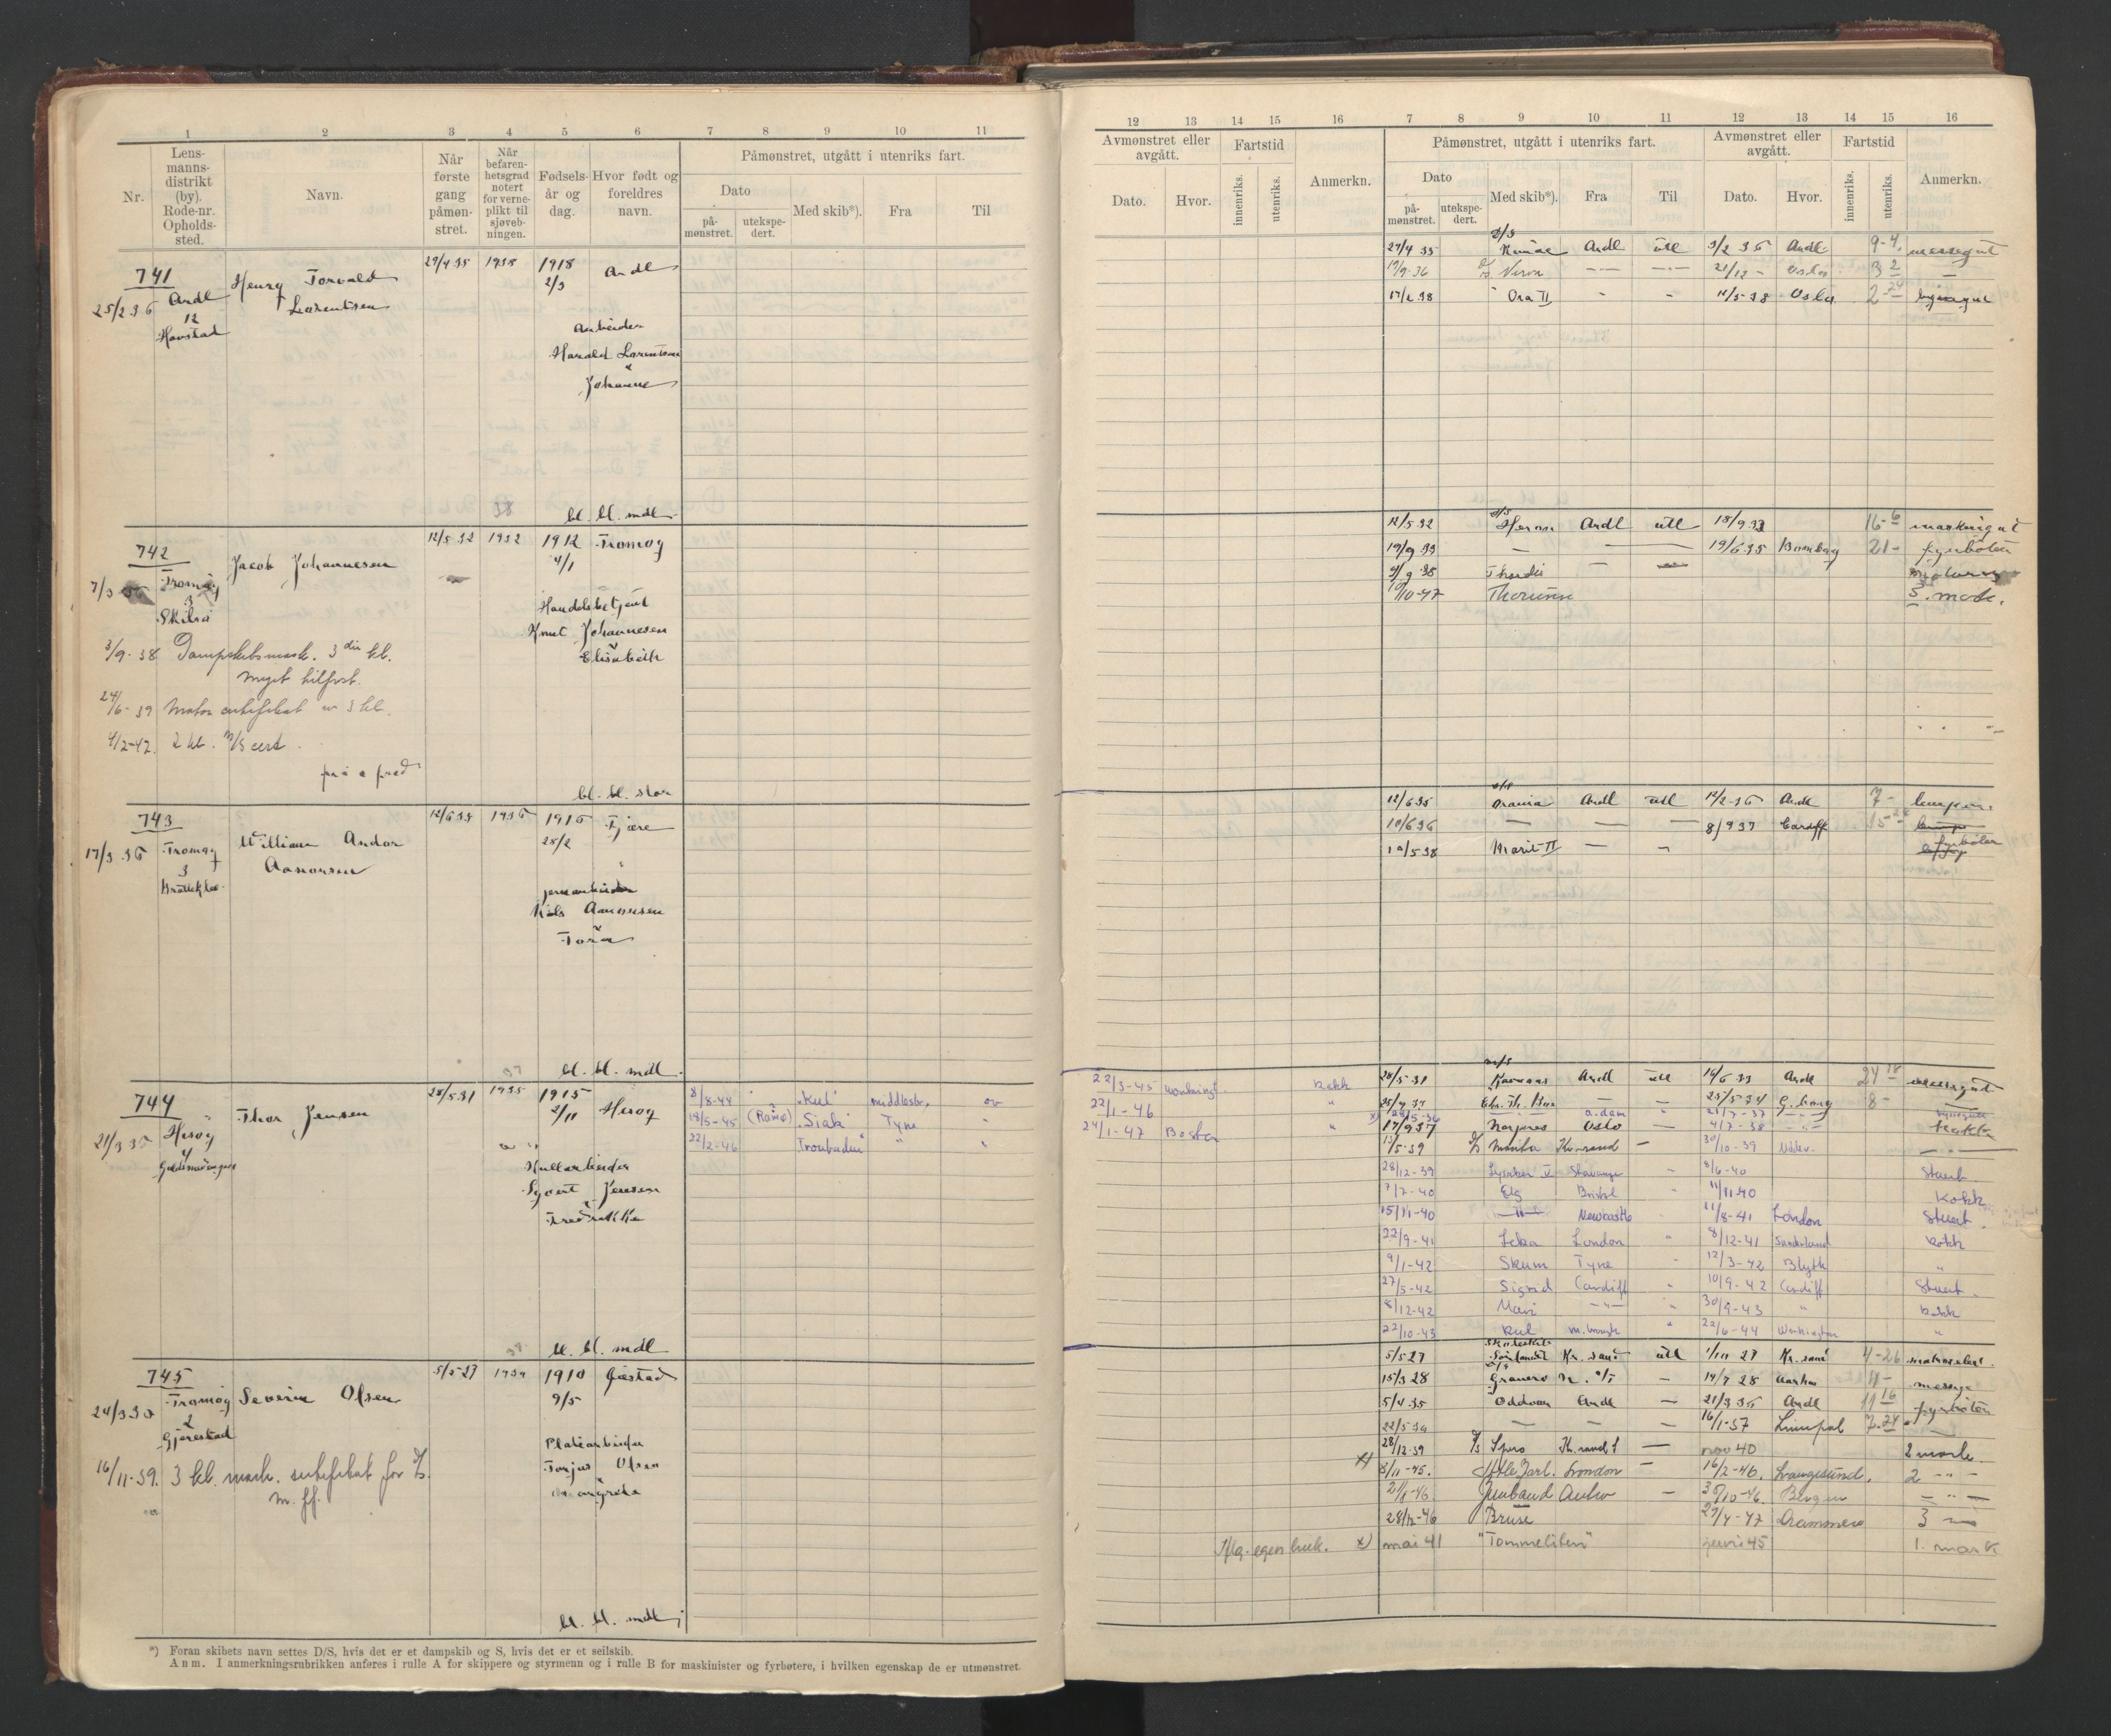 1 2 3 4 5 6 7 8 9 10 11
Nr.
Lens-
manns-
distrikt
(by).
Rode-nr.
Opholds-
sted.
Navn.
Når
første
gang
påmøn-
stret.
Når
befaren-
hetsgrad
notert
for verne-
plikt til
sjøveb-
ningen.
Fødsels-
år og
dag.
Hvor født og
foreldres
navn.
Påmønstret, utgått i utenriks fart.
Dato
på-
mønstret.
utekspe-
dert.
Med skib*).
Fra
Til
741
25/2 36 Ardl
12
Havstad
Henry Torvald
Larentsen
29/4 35 1938 1918
2/3
Ardl
Arbeider
Harald Larentsen
&
Johanne
38
bl. bl. mdl
742
7/3
Tromøy
3
Skilsø
Jacob Johannesen
12/5 32 1932 1912 Tromøy
4/1
Handelsbetjent
Knut Johannesen
&
Elisabeth
3/9-38 Dampskibsmask. 3 die kl.
meget tilfrst.
24/6-39 Motor certifikat 3 kl.
4/2-42. 2 kl. M/S cert.
bl. bl. stor
743
17/3 36 Tromøy
3
William Andor
Aanonsen
12/6 35 1936 1916 Fjære
25/2
jernarbeider
Nils Aanonsen
&
Tora
37
bl. bl. mdl.
744
21/3 35 Hisøy
4
Thor Jensen
28/5 31 1935 1915
2/11 Hisøy
Kullarbeider
Syvert Jensen
&
Fredrikke
8/8-44 "Kul" middlesbr. ov
18/5-45 (Ranø) "Siak" Tyne "
22/2-46 "Troubadur" " "
bl. bl. mdl
745
24/3 30 Tromøy
2
Gjerestad
Severin Olsen
5/5-27 1934 1910 Gjestad
9/5
Platearbeider
Torjus Olsen
Margrete
16/11-39. 3 kl. mask. sertifikat for D/S.
m. ff.
bl. bl. mdl
*) Foran skibets navn settes D/S, hvis det er et dampskib og S, hvis det er et seilskib.
Anm. I anmerkningsrubrikken anføres i rulle A for skippere og styrmenn og i rulle B for maskinister og fyrbøtere, i hvilken egenskap de er utmønstret.
12 13 14 15 16 7 8 9 10 11 12 13 14 15 16
Avmønstret eller
avgått.
Dato. Hvor.
Fartstid
innenriks.
utenriks.
Anmerkn.
Påmønstret, utgått i utenriks fart.
Dato
på-
mønstret.
utekspe-
dert.
Med skib*).
Fra
Til
Avmønstret eller
avgått.
Dato. Hvor.
Fartstid
innenriks.
utenriks.
Anmerkn.
D/S
29/4 35 Ardl utl 3/2 36 Ardl 9-4. messegut
19/9-36 Nerva 21/12 - Oslo 3 2
17/2 38 " Ora II - - 11/5-38 Oslo 2-24 byssegut
D/S
12/5 32 Heron Ardl utl 18/9 33 16-6 maskingut
19/9 33 — — 19/6 35 Bombay 21- fyrbøter
9/9-38 Thordis —
10/10-47 Thorunn 3. mask.
D/S
12/6 35 Orania Ardl utl 12/2-36 Ardl 7- lemper.
10/6 36 — — — 8/9 37 Cardiff 15-
10/5-38 Marit II — fyrbøter
M/S
22/3-45 Workingt. kokk 28/5-31 Ardl utl 14/6 33 Ardl 24 18 messegut
22/1-46 " 25/9 34 Chr. Th. Boe — — 25/5 34 8-
x) 28/5-36 A.dam " 21/7-37
24/1-47 Boston " 17/9 37 Norjerv Oslo 4/7-38 Kokk
13/5-39 D/S Kr.sand — 30/10-39
28/12-39 Stavanger " 8/6-40 Stuert
7/7-40 Elg Bristol " 11/11 40 Kokk
15/11-40 —"— Newcastle 11/8-41 London Stuert
22/9-41 Leka London " 8/12-41 Sunderland kokk
9/1-42 Skum Tyne 12/3-42 Blyth "
27/5-42 Sigrid Cardiff " 10/9-42 Cardiff Stuert
8/12-42 Mari —"— " 30/9-43 " kokk
22/10-43 Kul m.brough " 22/6-44 Workington "
Skoleskib
5/5 27 Sørlandet Kr.sand utl 1/10 27 Kr.sand 4-26
15/3 28 — 14/7 28 Aarhus 4-
5/4 35 Oddvar Ardl — 21/3 36 Ardl 11 16 fyrbøter
22/5 36 — — — 16/1-37 Liverpool 7-24
28/12-39 D/S Spero Kr.sand S — nov 40 2 mask.
x) 8/11-45. Atle Jarl. London — 16/2-46. Langesund. 2 -"-
21/8-46 — 30/10-46 Bergen — " —
28/12-46 Bruse 29/4-47 Drammen 3 —
Iflg. egen bok. x) mai 41 "Tommeliten" juni 45 1. mask